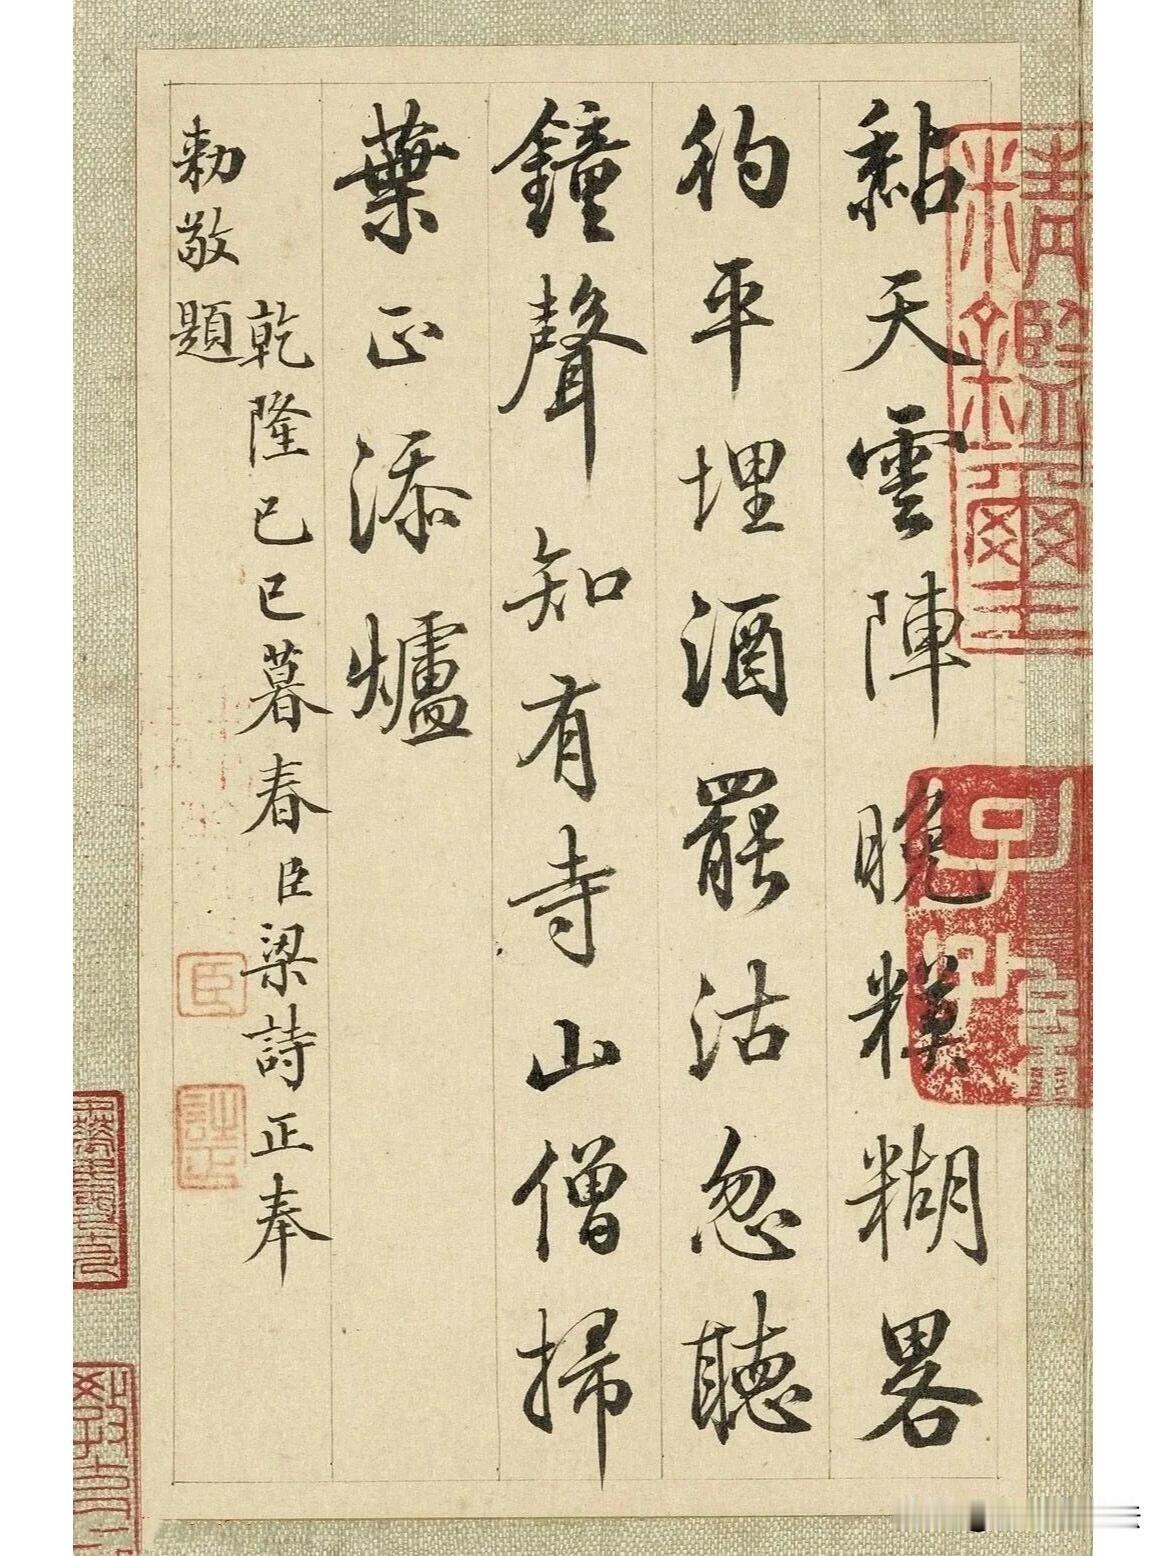 黏天雲陣晚糢糊畧
彴平埋酒罷沽忽聽
鐘聲知有寺山僧掃
葉正添爐
乾隆己巳暮春臣梁詩正奉
敕敬題
臣
詩正
三希堂精鑑璽
宜子孫